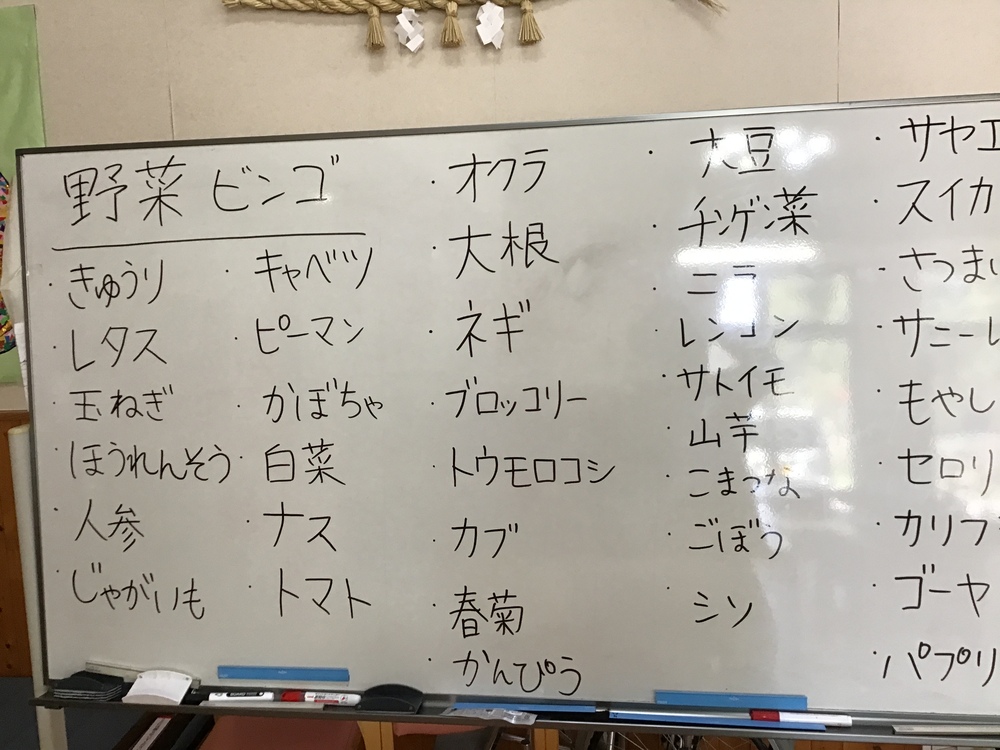 野菜 ビンゴ
・きゅうり
・レタス
・玉ねぎ
・ほうれんそう
・人参
・じゃがいも
・キャベツ
・ピーマン
・かぼちゃ
・白菜
・ナス
・トマト
・オクラ
・大根
・ネギ
・ブロッコリー
・トウモロコシ
・カブ
・春菊
・かんぴょう
・大豆
・チンゲン菜
・ニラ
・レンコン
・サトイモ
・山芋
・こまつな
・ごぼう
・シソ
・サヤエ
・スイカ
・さつまい
・サニーレ
・もやし
・セロリ
・カリフ
・ゴーヤ
・パプリ